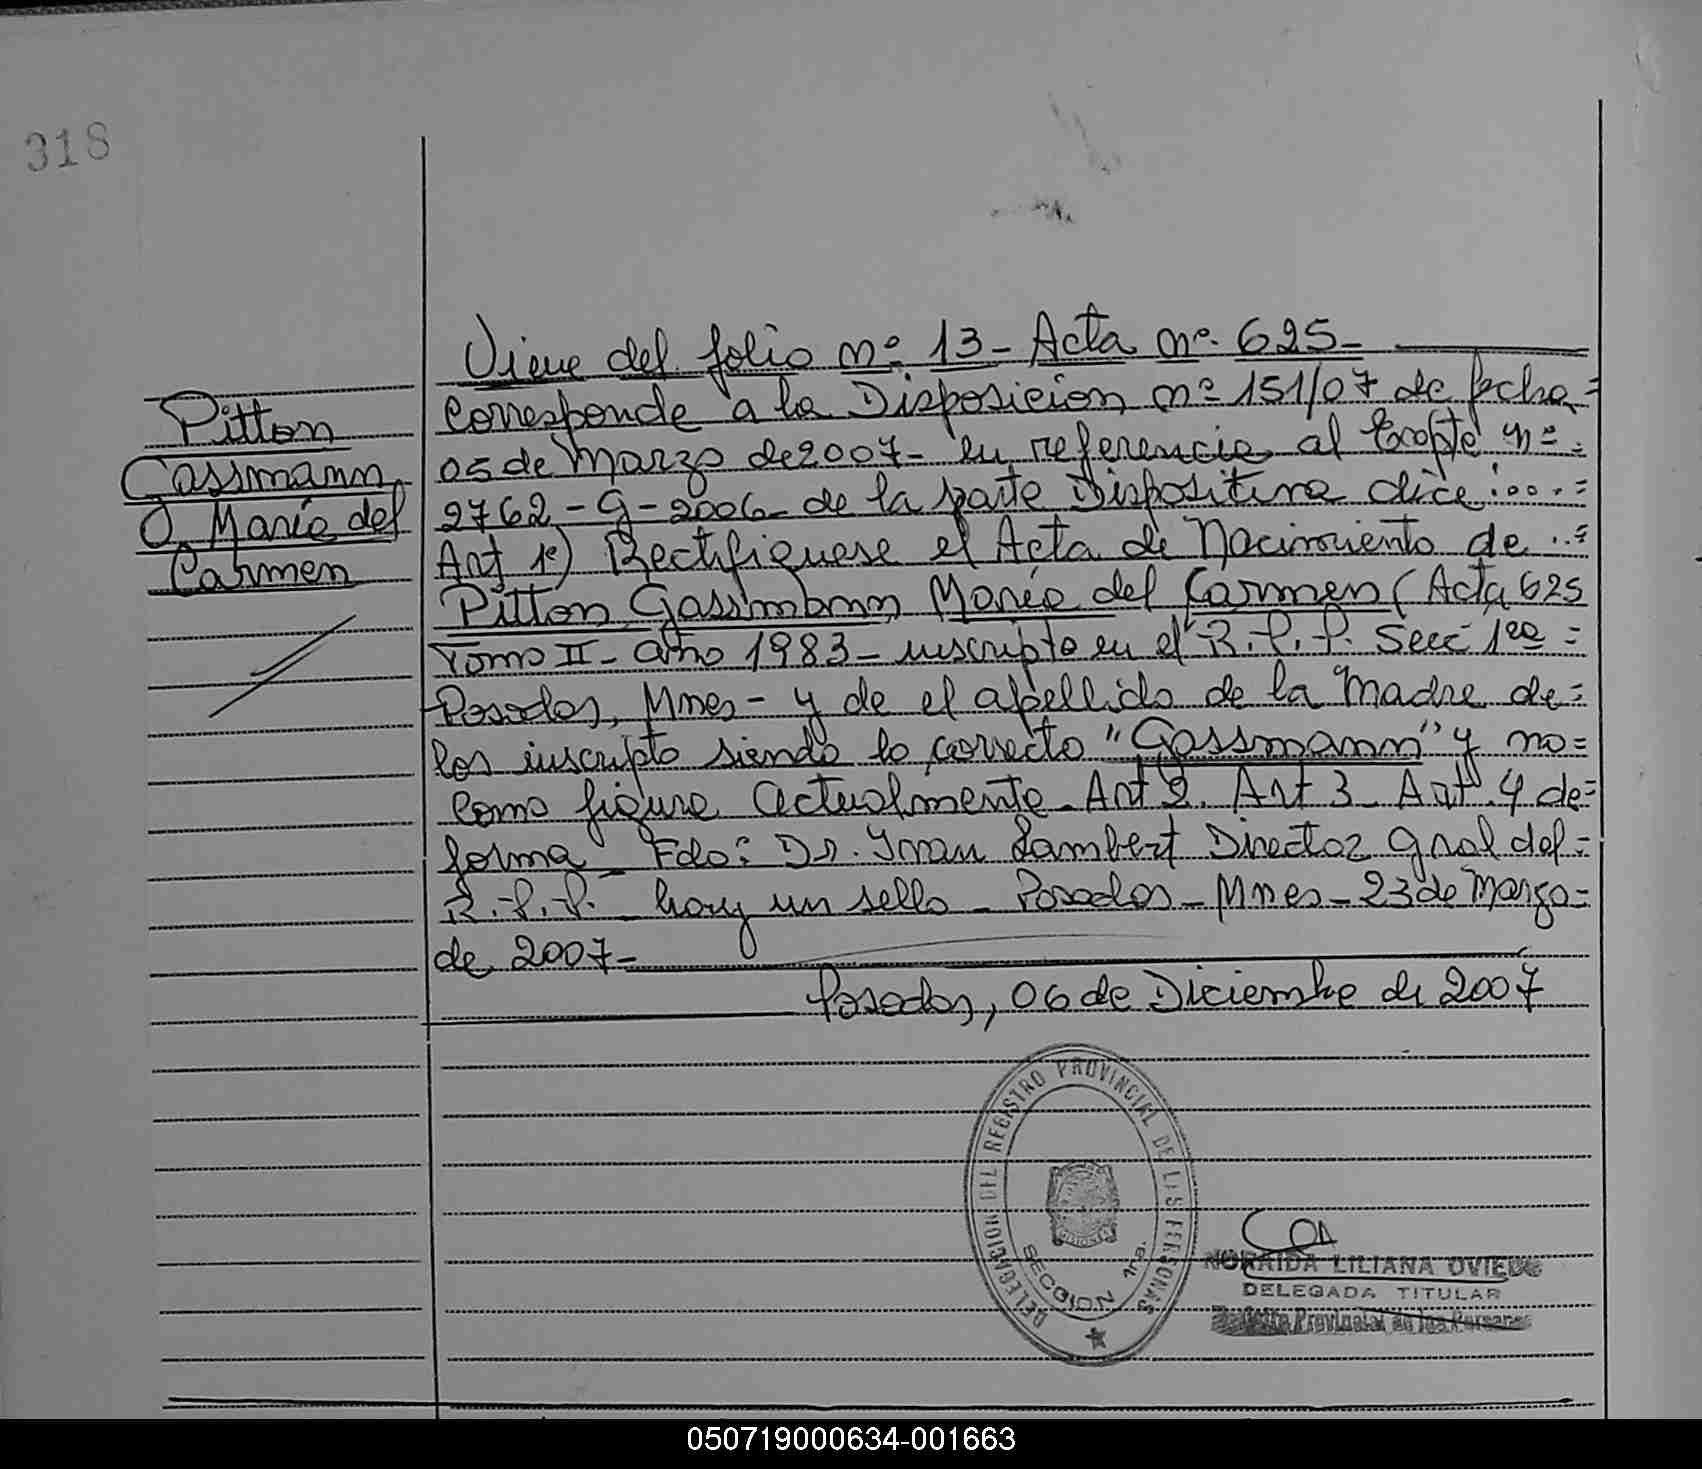 318
Viene del folio nº 13 - Acta nº 625 -
Corresponde a la Disposicion nº 151/07 de fecha =
05 de Marzo de 2007 - en referencia al Expte nº =
2762 - G - 2006 - de la parte Dispositiva dice :.... =
Art 1º) Rectifiquese el Acta de Nacimiento de ..=
Pitton Gassmann, María del Carmen ( Acta 625
Tomo II - año 1983 - inscripto en el R.P.P. Secc 1ra =
Posadas, Mnes - y de el apellido de la Madre de =
los inscripto siendo lo correcto "Gassmann" y no =
como figura actualmente - Art 2. Art 3 - Art 4 de =
forma - Fdo: Dr. Ivan Lambert Director Gral del =
R.P.P. - hay un sello - Posadas - Mnes - 23 de Marzo =
de 2007 -
Posadas, 06 de Diciembre de 2007
Pitton
Gassmann,
María del
Carmen
DELEGACION DEL REGISTRO PROVINCIAL DE LAS PERSONAS
SECCION 1ra.
NORAIDA LILIANA OVIEDO
DELEGADA TITULAR
Provincial de las Personas
050719000634-001663